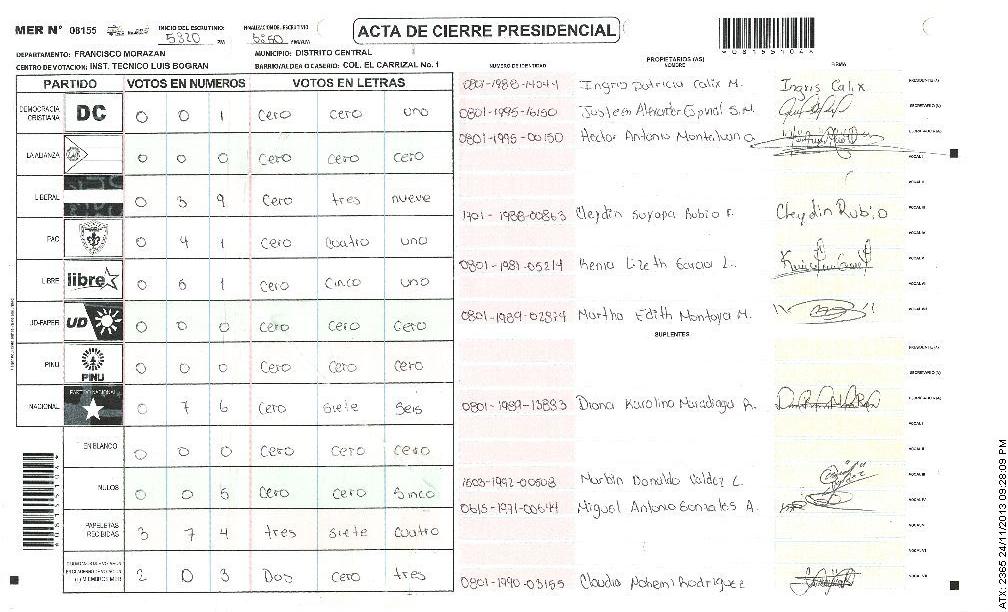 MER N° 08155 INICIO DEL ESCRUTINIO 5320 PM FINALIZACION DEL ESCRUTINIO PM/AM ACTA DE CIERRE PRESIDENCIAL
DEPARTAMENTO: FRANCISCO MORAZAN MUNICIPIO: DISTRITO CENTRAL
CENTRO DE VOTACION: INST. TECNICO LUIS BOGRAN BARRIO/ALDEA O CASERIO: COL. EL CARRIZAL No. 1
PARTIDO VOTOS EN NUMEROS VOTOS EN LETRAS
DEMOCRACIA CRISTIANA DC 0 0 1 cero cero uno
LA ALIANZA 0 0 0 Cero cero cero
LIBERAL 0 3 9 Cero tres nueve
PAC 0 4 1 cero cuatro uno
LIBRE libre 0 5 1 Cero cinco uno
UD-FAPER UD 0 0 0 Cero Cero Cero
PINU PINU 0 0 0 Cero Cero cero
NACIONAL PARTIDO NACIONAL 0 7 6 Cero siete seis
EN BLANCO 0 0 0 Cero Cero cero
NULOS 0 0 5 Cero cero Sinco
PAPELETAS RECIBIDAS 3 7 4 tres siete cuatro
2 0 3 Dos cero tres
NUMERO DE IDENTIDAD PROPIETARIOS (AS) NOMBRE FIRMA
Ingris Patricia Calix M. Ingris Calix PRESIDENTE(A)
0801-1995-16150 SECRETARIO(A)
0801-1995-00150 Hector Antonio ESCRUTADOR(A)
VOCAL I
VOCAL II
1701-1988-00863 Cleydin Suyapa Rubio F. Cleydin Rubio VOCAL III
VOCAL IV
0801-1981-05214 Kenia Lizeth Garcia L. VOCAL V
VOCAL VI
0801-1989-02874 Martha Edith Montoya M. VOCAL VII
SUPLENTES
PRESIDENTE(A)
SECRETARIO(A)
0801-1989-13883 Diana Karolina Maradiaga A. ESCRUTADOR(A)
VOCAL I
VOCAL II
1503-1992-00508 Marbin Donaldo Valdez L. VOCAL III
0615-1971-00644 Miguel Antonio Gonzales A. VOCAL IV
VOCAL V
VOCAL VI
0801-1990-03155 Claudia Nohemi Rodriguez VOCAL VII
ATX: 2365 24/11/2013 09:28:09 PM